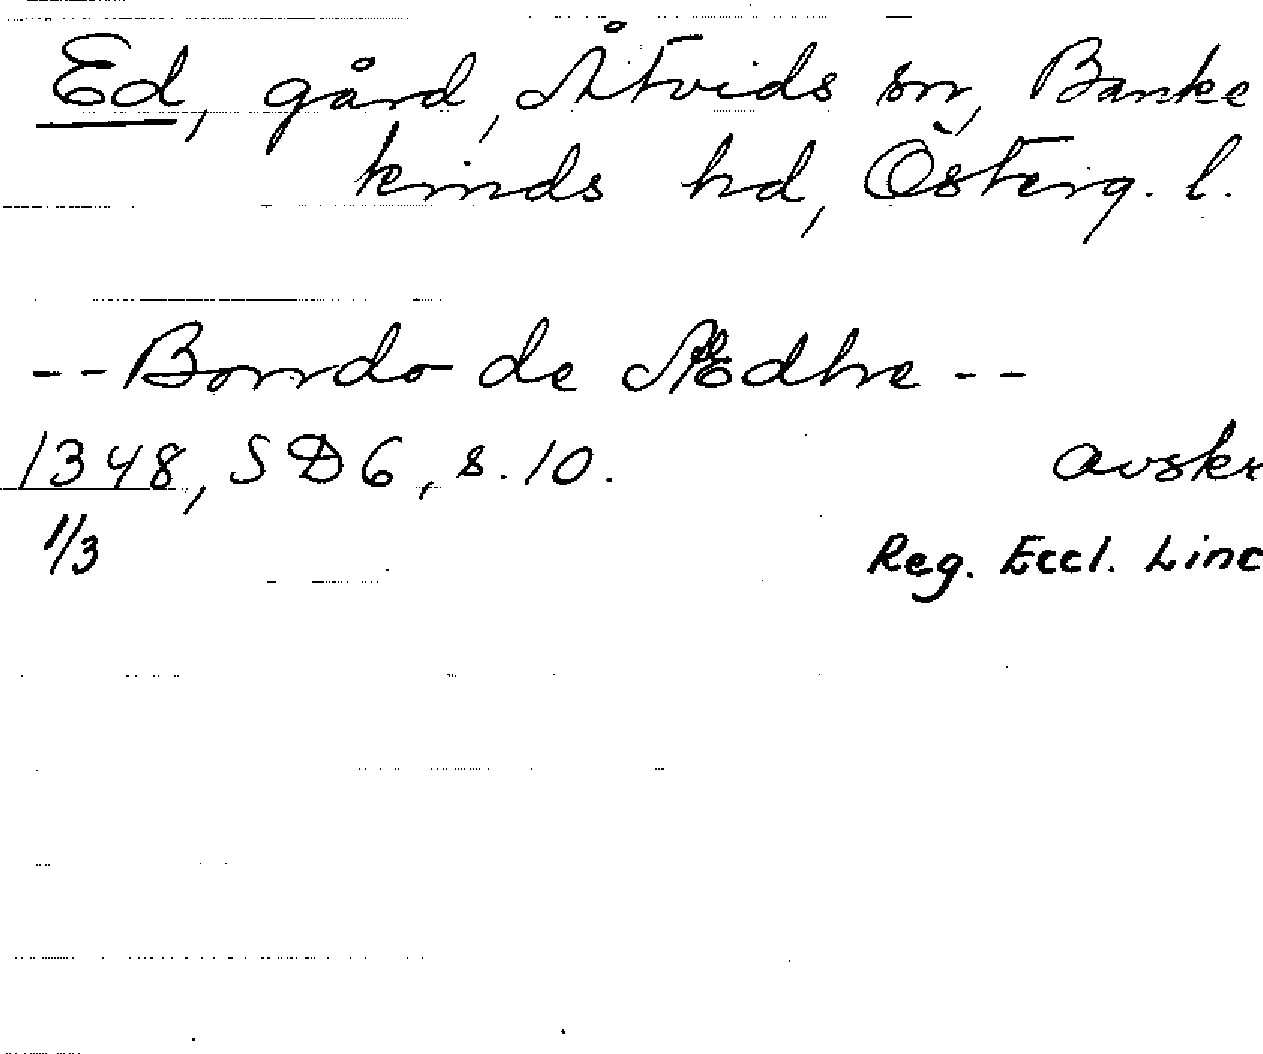 Ed, gård, Åtvids sn, Banke
kinds hd, Österg. l.
-- Bondo de Ædhe --
1348, SD 6, s. 10. avskr
1/3 Reg. Eccl. Linc